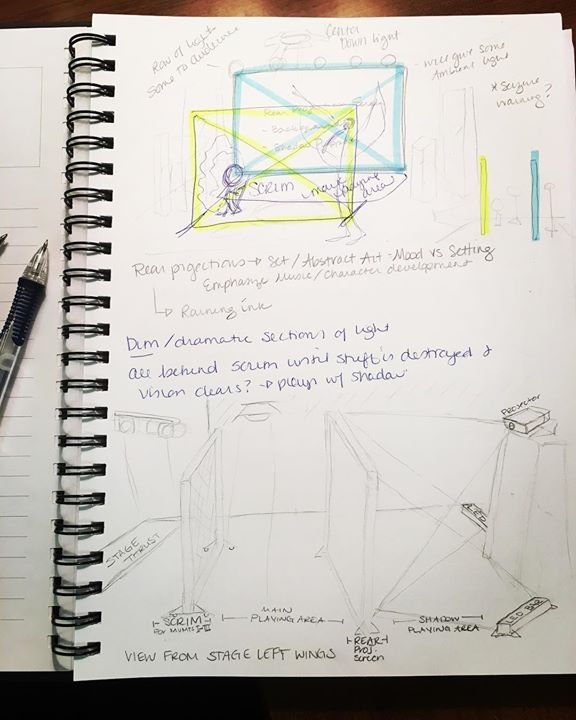 Row of lights
some to audience
Center
Down light
will give some
Ambient light
* Seizure
warning?
Rear Projection
- Backgrounds
- Shadow
SCRIM
main playing
area
Rear projections → Set / Abstract Art - Mood vs Setting
Emphasize Music / Character development
↳ Raining ink
Dim / dramatic sections of light
all behind scrim until stuff is destroyed &
vision clears? → plays w/ shadow
PROJECTOR
LED
STAGE
THRUST
LED BAR
SCRIM
FOR MVMTS I-III
MAIN
PLAYING AREA
REAR
Proj.
Screen
SHADOW
PLAYING AREA
VIEW FROM STAGE LEFT WINGS